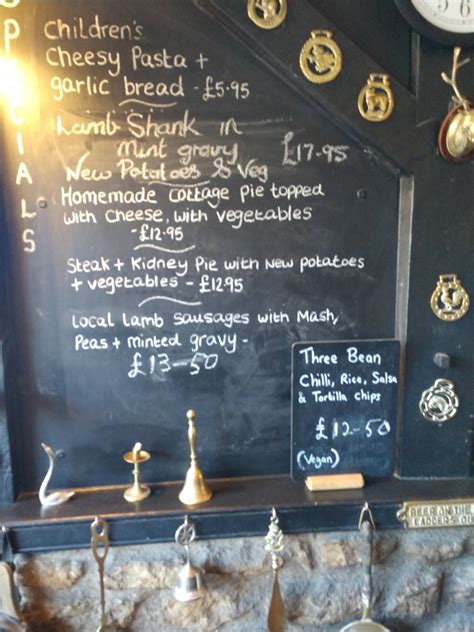 SPECIALS
Children's
Cheesy Pasta +
garlic bread - £5.95
Lamb Shank in
mint gravy £17.95
New Potatoes & Veg
Homemade cottage pie topped
with cheese, with vegetables
- £12.95
Steak + Kidney Pie with New potatoes
+ vegetables - £12.95
Local Lamb sausages with Mash,
Peas + minted gravy -
£13-50
Three Bean
Chilli, Rice, Salsa
& Tortilla chips
£12-50
(Vegan)